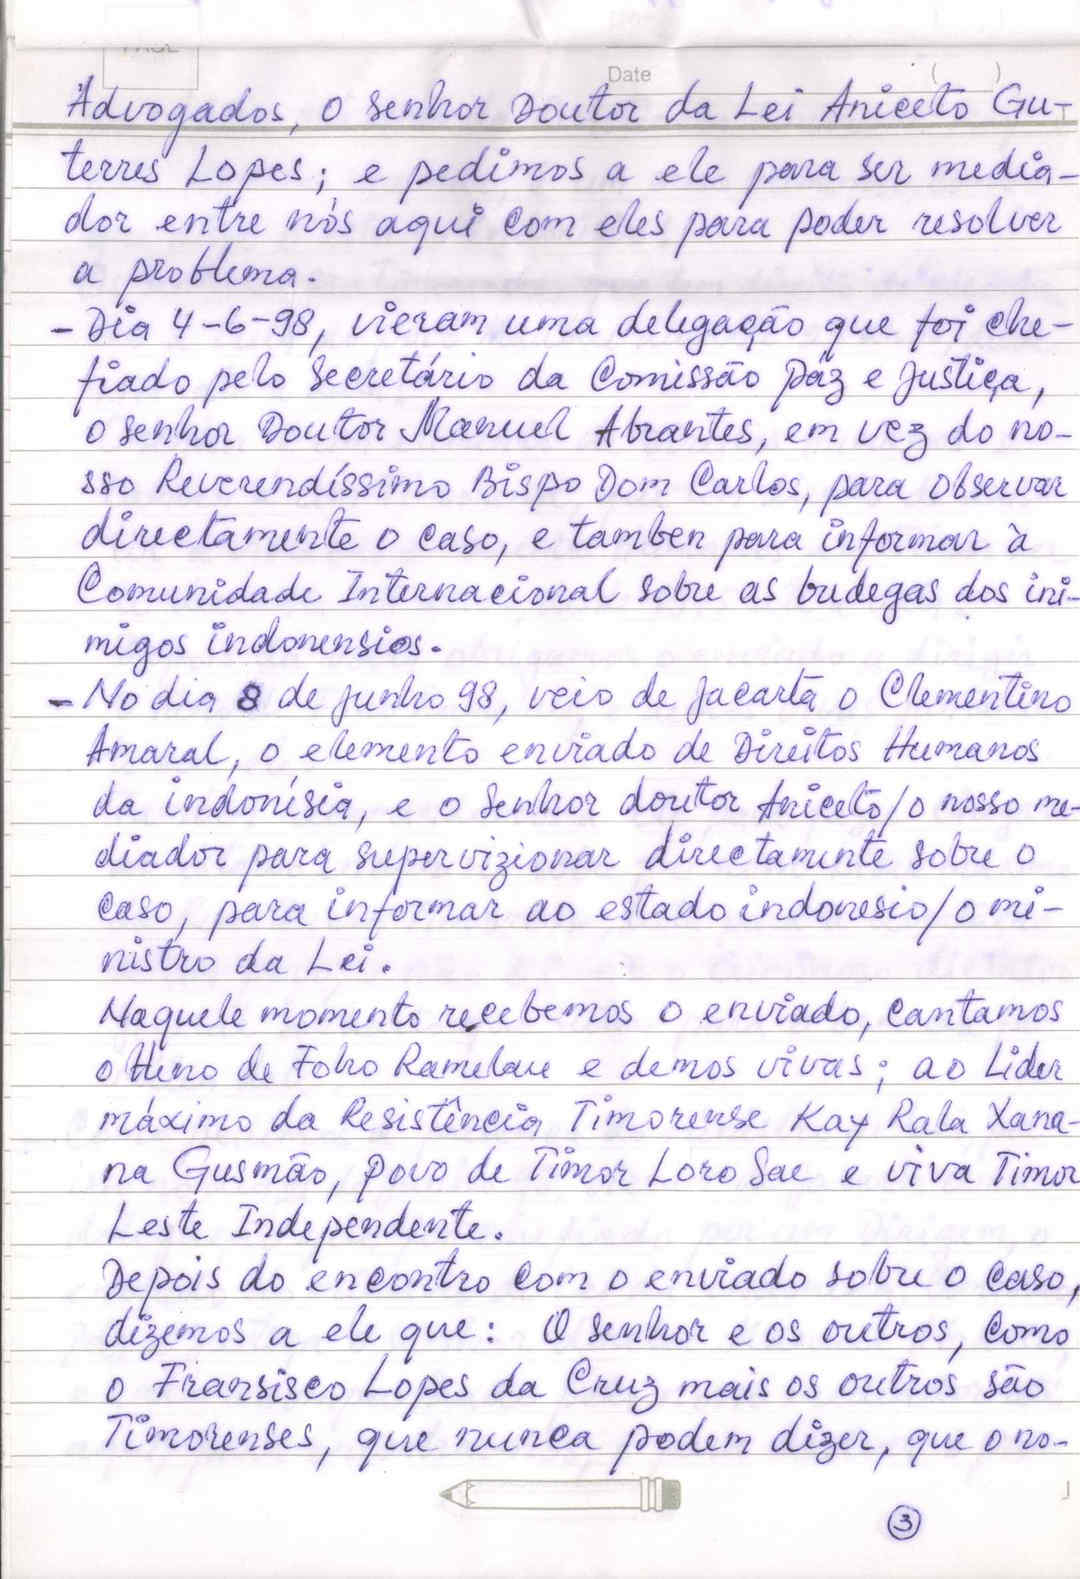 PAGE
Date ( )
Advogados, o senhor Doutor da Lei Aniceto Gu-
terres Lopes; e pedimos a ele para ser media-
dor entre nós aqui com eles para poder resolver
a problema.
- Dia 4-6-98, vieram uma delegação que foi che-
fiado pelo Secretário da Comissão Páz e Justiça,
o senhor Doutor Manuel Abrantes, em vez do no-
sso Reverendíssimo Bispo Dom Carlos, para observar
directamente o caso, e tamben para informar à
Comunidade Internacional sobre as budegas dos ini-
migos indonensios.
- No dia 8 de junho 98, veio de Jacarta o Clementino
Amaral, o elemento enviado de Direitos Humanos
da indonísia, e o Senhor doutor Aniceto/o nosso me-
diador para supervizionar directamente sobre o
caso, para informar ao estado indonesio/o mi-
nistro da Lei.
Naquele momento recebemos o enviado, cantamos
o Hino de Foho Ramelau e demos vivas; ao Lider
máximo da Resistência Timorense Kay Rala Xana-
na Gusmão, povo de Timor Loro Sae e viva Timor
Leste Independente.
Depois do encontro com o enviado sobre o caso,
dizemos a ele que: O senhor e os outros, como
o Fransisco Lopes da Cruz mais os outros são
Timorenses, que nunca podem dizer, que o no-
3